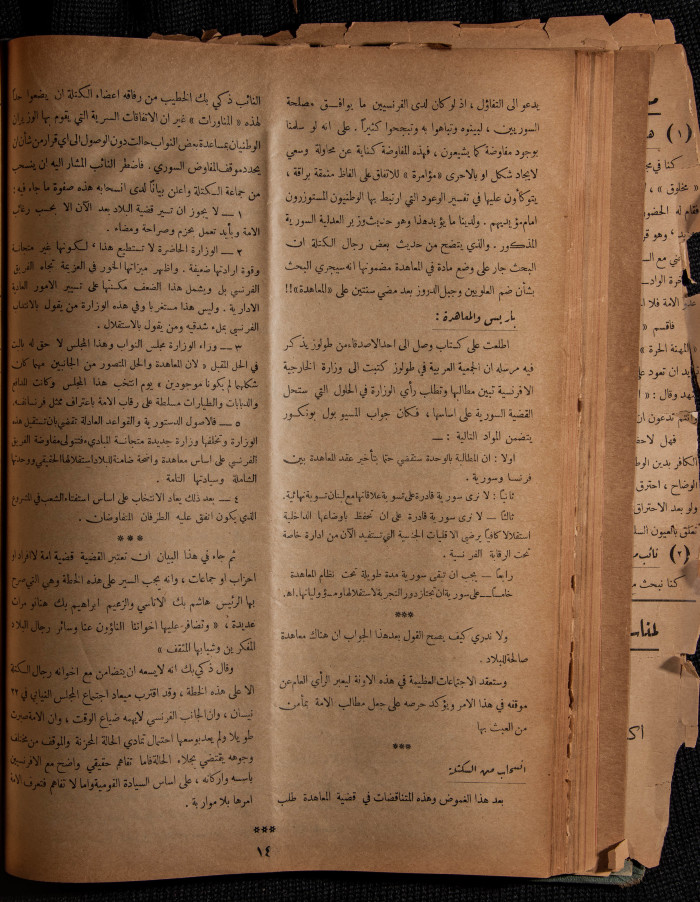 يدعو الى التفاؤل ، اذ لو كان لدى الفرنسيين ما يوافق مصلحة
السوريين ، لبينوه وتباهوا به وتبجحوا كثيراً . على انه لو سلمنا
بوجود مفاوضة كما يشيعون ، فهذه المفاوضة كناية عن محاولة وسعي
لايجاد شكل او بالاحرى « مؤامرة » للاتفاق على الفاظ منمقة براقة ،
يتوكأون عليها في تفسير الوعود التي ارتبط بها الوطنيون المستوزرون
امام مؤيديهم . ولدينا ما يؤيد هذا وهو حديث وزير العدلية السورية
المذكور . والذي يتضح من حديث بعض رجال الكتلة ان
البحث جار على وضع مادة في المعاهدة مضمونها انه سيجري البحث
بشأن ضم العلويين وجبل الدروز بعد مضي سنتين على «المعاهدة»!!
باريس والمعاهدة :
اطلعت على كتاب وصل الى احد الاصدقاء من طولوز يذكر
فيه مرسله ان الجمعية العربية في طولوز كتبت الى وزارة الخارجية
الافرنسية تبين مطالبها وتطلب رأي الوزارة في الحلول التي ستحل
القضية السورية على اساسها ، فكان جواب المسيو بول بونكور
يتضمن المواد التالية : —
اولا : ان المطالبة بالوحدة ستقضي حتما بتأخير عقد المعاهدة بين
فرنسا وسورية .
ثانياً : لا نرى سورية قادرة على تسوية علاقاتها مع لبنان تسوية نهائية .
ثالثاً — لا نرى سورية قادرة على ان تحتفظ باوضاعها الداخلية
استقلالا كافياً يرضي الاقليات الجنسية التي تستفيد الآن من ادارة خاصة
تحت الرقابة الفرنسية .
رابعاً — يجب ان تبقى سورية مدة طويلة تحت نظام المعاهدة
خامساً — على سورية ان تجتاز دور التجربة لاستقلالها ومسؤولياتها . اهـ.
***
ولا ندري كيف يصح القول بعد هذا الجواب ان هناك معاهدة
صالحة للبلاد .
وستعقد الاجتماعات العظيمة في هذه الاونة ليعبر الرأي العام عن
موقفه في هذا الامر ويؤكد حرصه على جعل مطالب الامة بمأمن
من العبث بها
***
انسحاب من الكتلة
بعد هذا الغموض وهذه المتناقضات في قضية المعاهدة طلب
النائب ذكي بك الخطيب من رفاقه اعضاء الكتلة ان يضعوا حداً
لهذه « المناورات » غير ان الاتفاقات السرية التي يقوم بها الوزيران
الوطنيان بمساعدة بعض النواب حالت دون الوصول الى اي قرار من شأن ان
يحدد موقف المفاوض السوري . فاضطر النائب المشار اليه ان ينسحب
من جماعة الكتلة واعلن بياناً لدى انسحابه هذه صفوة ما جاء فيه :
١ — لا يجوز ان تسير قضية البلاد بعد الآن الا بحسب رغائب
الامة وبأيد تعمل بحزم وصراحة ومضاء .
٢ — الوزارة الحاضرة لا تستطيع هذا ، لكونها غير متجانسة
وقوة ارادتها ضعيفة . واظهر ميزاتها الخور في العزيمة تجاه الفريق
الفرنسي بل ويشمل هذا الضعف مكنتها على تسيير الامور العادية
الادارية . وليس هذا مستغربا وفي هذه الوزارة من يقول بالانتداب
الفرنسي بملء شدقيه ومن يقول بالاستقلال .
٣ — وراء الوزارة مجلس النواب وهذا المجلس لا حق له بالبت
في الحل المقبل « لان المعاهدة والحل المتصور من الجانبين مهما كان
شكلهما لم يكونا موجودين » يوم انتخب هذا المجلس وكانت المدافع
والدبابات والطيارات مسلطة على رقاب الامة باعتراف ممثل فرنسا نفسه.
٥ — فالاصول الدستورية والقواعد العادلة تقضي بان تستقيل هذه
الوزارة وتخلفها وزارة جديدة متجانسة المبادىء فتتولى مفاوضة الفريق
الفرنسي على اساس معاهدة واضحة ضامنة للبلاد استقلالها الحقيقي ووحدتها
الشاملة وسيادتها التامة .
٤ — بعد ذلك يعاد الانتخاب على اساس استفتاء الشعب في المشروع
الذي يكون اتفق عليه الطرفان المتفاوضان .
***
ثم جاء في هذا البيان ان تعتبر القضية قضية امة لا افراد او
احزاب او جماعات ، وانه يجب السير على هذه الخطة وهي التي صرح
بها الرئيس هاشم بك الاتاسي والزعيم ابراهيم بك هنانو مرات
عديدة ، « وتضافر عليها اخواننا الناؤون عنا وسائر رجال البلاد
المفكرين وشبابها المثقف »
وقال ذكي بك انه لا يسعه ان يتضامن مع اخوانه رجال الكتلة
الا على هذه الخطة ، وقد اقترب ميعاد اجتماع المجلس النيابي في ٢٢
نيسان ، وان الجانب الفرنسي لا يهمه ضياع الوقت ، وان الامة صبرت
طويلا ولم يعد بوسعها احتمال تمادي الحالة المحزنة والموقف من مختلف
وجوهه يقتضي بجلاء الحالة فاما تفاهم حقيقي واضح مع الافرنسيين
باسسه واركانه ، على اساس السيادة القومية واما لا تفاهم فتعرف الامة
امرها بلا مواربة .
***
١٤